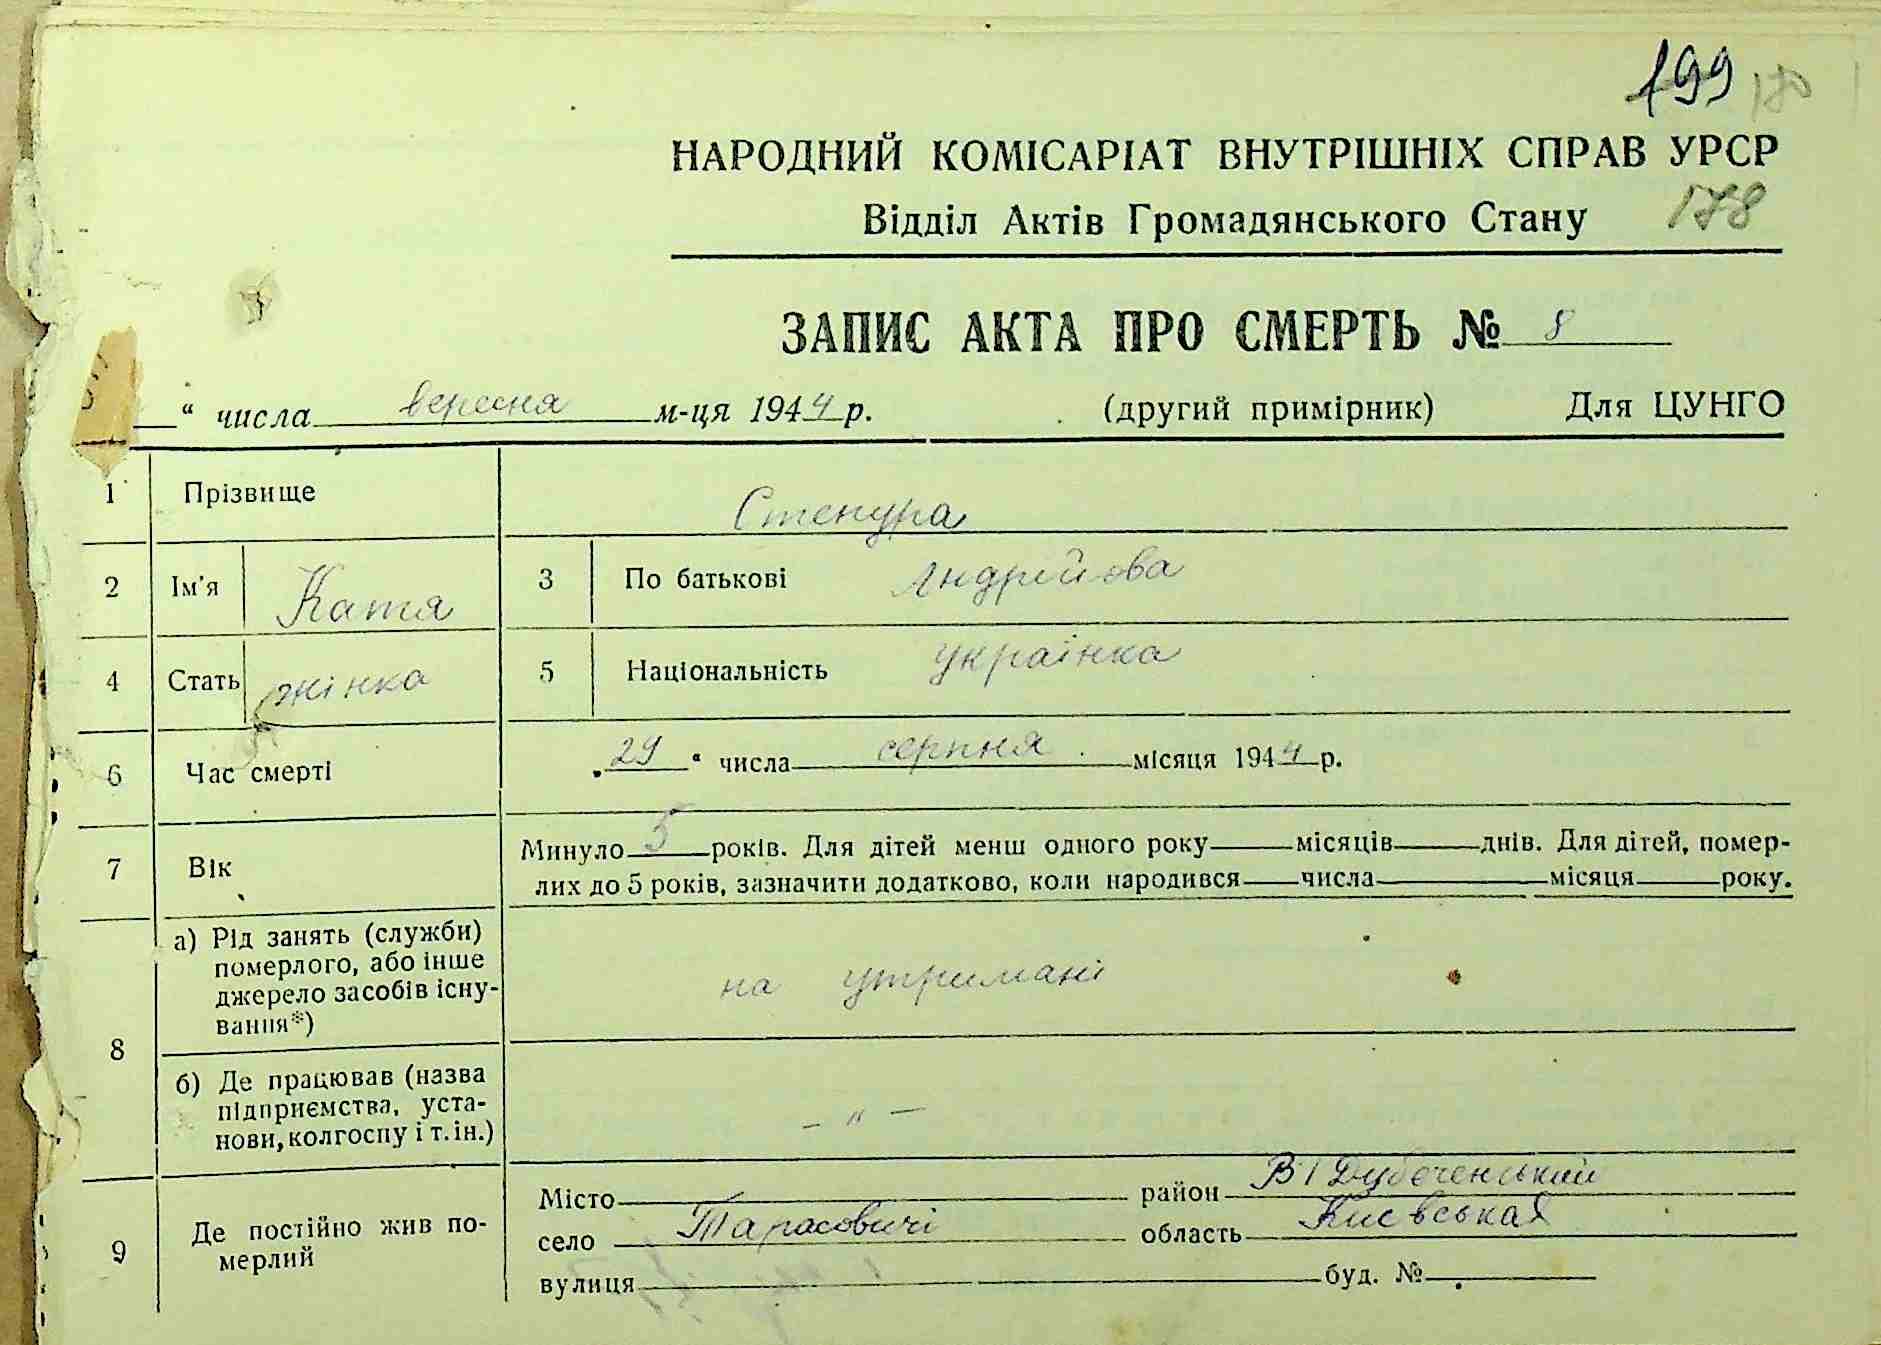 199 180
НАРОДНИЙ КОМІСАРІАТ ВНУТРІШНІХ СПРАВ УРСР
Відділ Актів Громадянського Стану 178
ЗАПИС АКТА ПРО СМЕРТЬ № 8
“ числа вересня м-ця 1944 р. (другий примірник) Для ЦУНГО
1 Прізвище Стенура
2 Ім'я Катя 3 По батькові Андрійова
4 Стать жінка 5 Національність українка
6 Час смерті „29“ числа серпня місяця 1944 р.
7 Вік Минуло 5 років. Для дітей менш одного року місяців днів. Для дітей, помер-
лих до 5 років, зазначити додатково, коли народився числа місяця року.
8 а) Рід занять (служби)
померлого, або інше
джерело засобів існу-
вання*)
на утримані
б) Де працював (назва
підприємства, уста-
нови, колгоспу і т. ін.)
– „ –
9 Де постійно жив по-
мерлий
Місто район В/Дубеченський
село Тарасовичі область Київська
вулиця буд. №